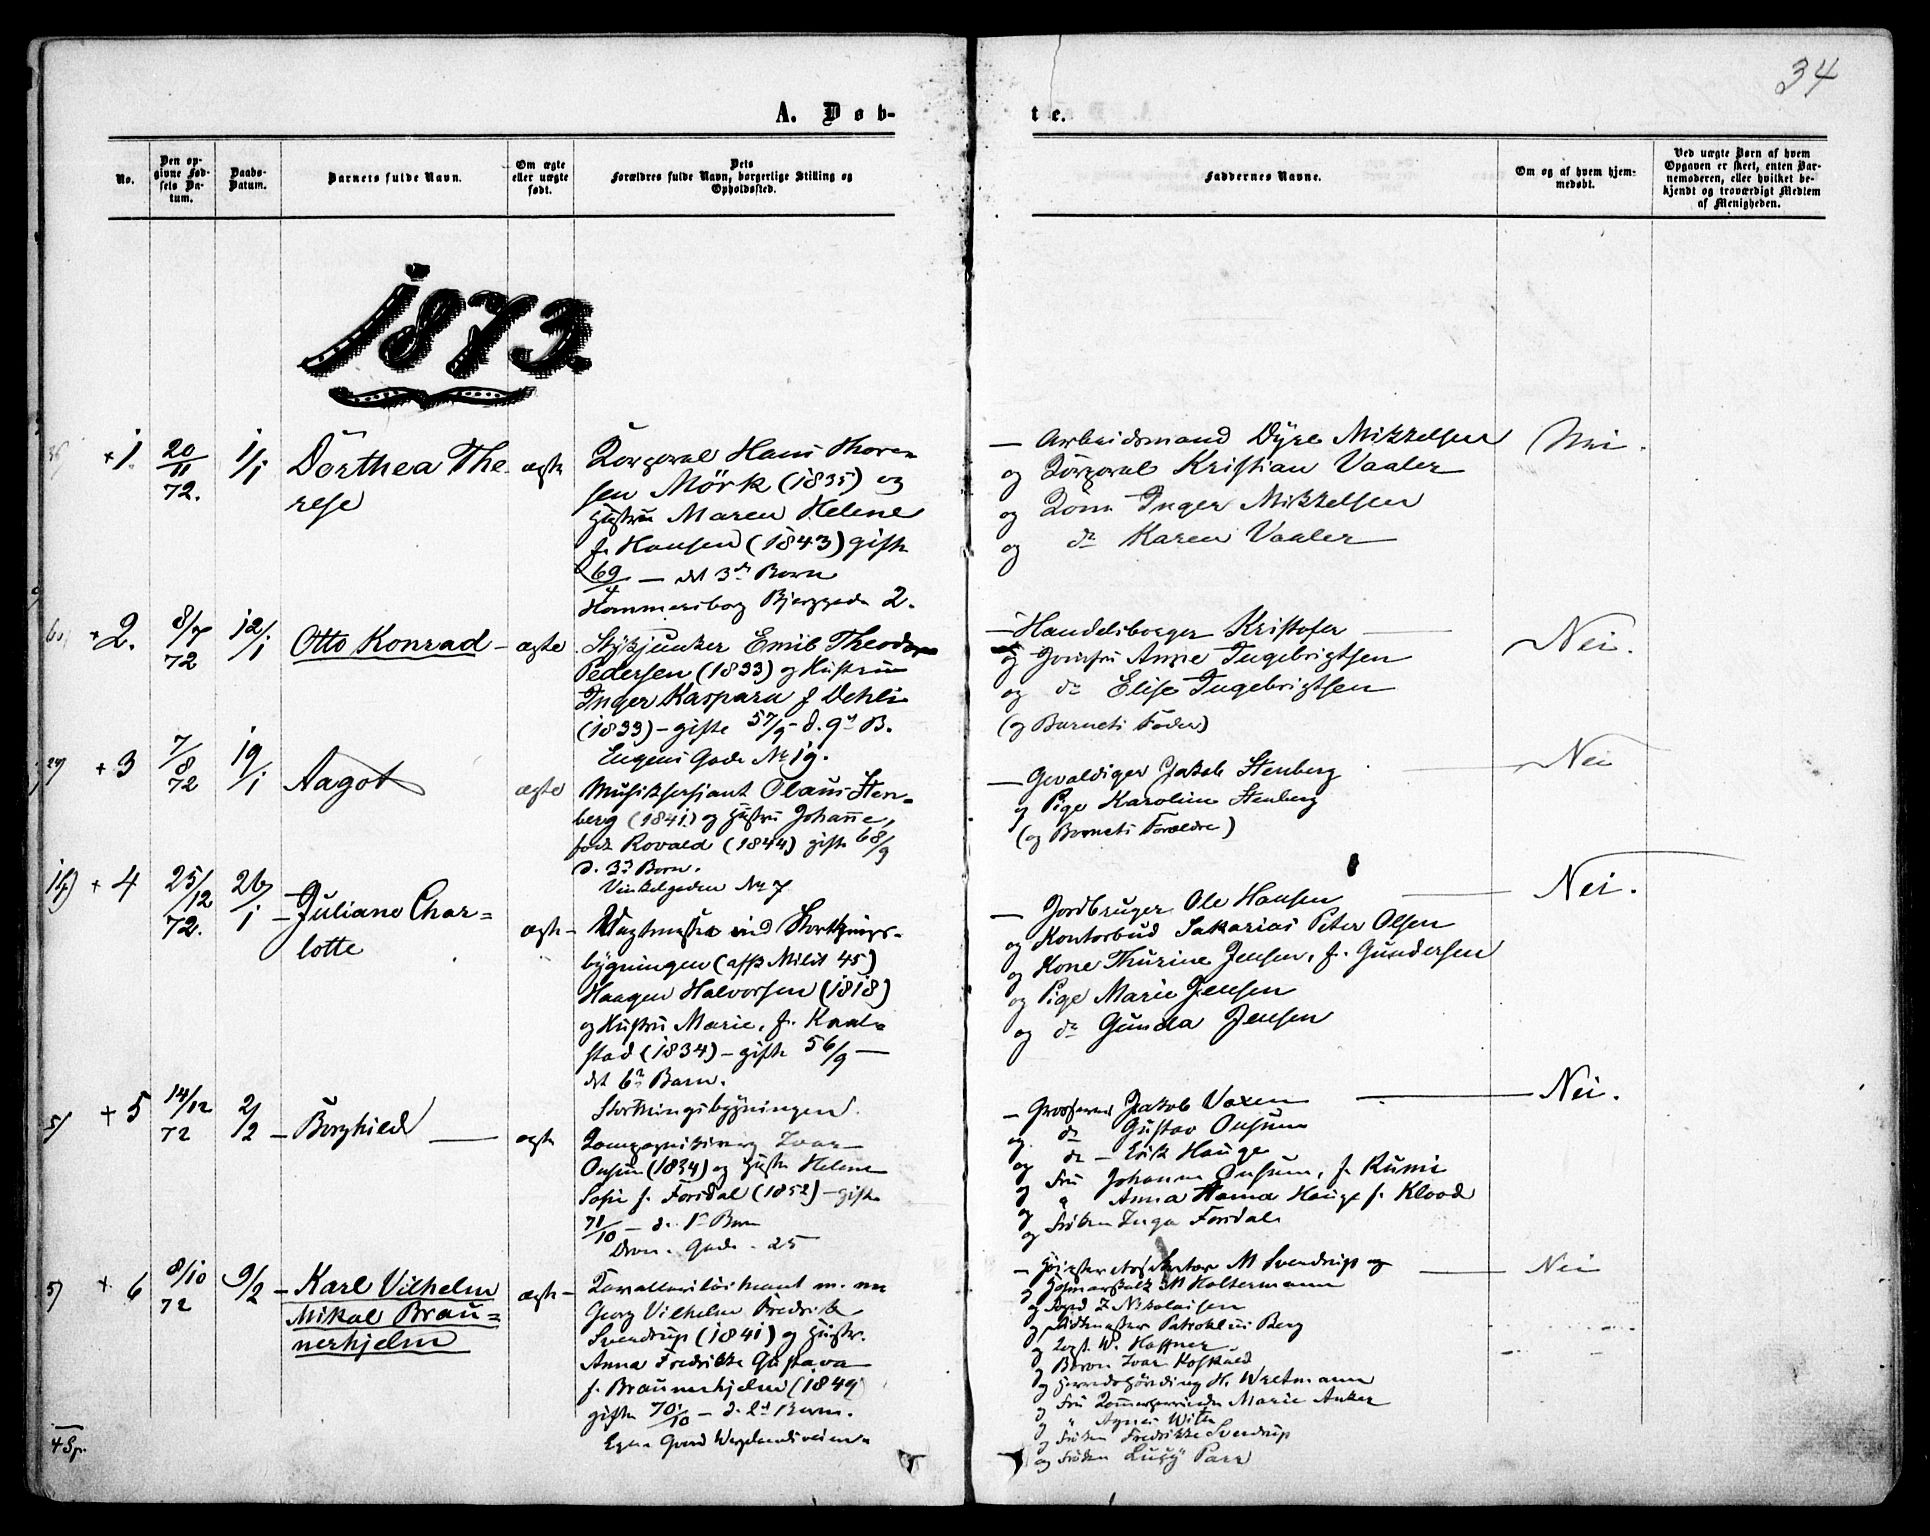 34
A. Døb-
te.
No.
Den op-
givne Fød-
sels Da-
tum.
Daabs-
Datum.
Barnets fulde Navn.
Om ægte
eller uægte
født.
Dets
Forældres fulde Navn, borgerlige Stilling og
Opholdssted.
Faddernes Navne.
Om og af hvem hjem-
medøbt.
Ved uægte Børn af hvem
Opgaven er skeet, enten Bar-
nemoderen, eller hvilket be-
kjendt og troværdigt Medlem
af Menigheden.
1873.
+1. 20/11 72. 1/1 Dorthea The-
rese
ægte
Korporal Hans Thore-
sen Mörk (1835) og
Hustru Maren Helene
f. Hansen (1843) gifte
69/4 — det 3de Barn
Hammersborg Bjerggade 2.
— Arbeidsmand Dyre Mikkelsen
og Korporal Kristian Vaaler
og Kone Inger Mikkelsen
og do Karen Vaaler
Nei.
+2. 8/7 72 12/1 Otto Konrad – ægte
Stykjunker Emil Theodor
Pedersen (1833) og Hustru
Inger Kaspara f Dehli
(1833) – gifte 57/9 – d. 9de B.
Eugenis Gade No 19.
— Handelsborger Kristofer
og Jomfru Anne Ingebrigtsen
og do Elise Ingebrigtsen
(og Barnets Fader)
Nei.
+3 7/8 72 19/1 Aagot
ægte
Musiksersjant Olaus Sten-
berg (1841) og Hustru Johanne,
født Rovald (1844) gifte 68/9
d. 3de Barn.
Vinkelgaden No 7
— Gevaldiger Jakob Stenberg
og Pige Karoline Stenberg
(og Barnets Forældre)
Nei
+4 25/12 72. 26/1 – Juliane Char-
lotte
ægte –
Vagtmester ved Storthings-
bygningen (afsk Milit 45)
Haagen Halvorsen (1818)
og Hustru Marie, f. Kaal-
stad (1834) – gifte 56/9 —
det 6te Barn.
Storthingsbygningen.
— Jordbruger Ole Hansen
og Kontorbud Sakarias Peter Olsen
og Kone Thurine Jensen, f. Gundersen
og Pige Marie Jensen
og do Gunda Jensen
Nei.
+5 14/12 72 2/2 – Borghild —
ægte
Kompagnikirurg Ivar
Onsum (1834) og Hustru Helene
Sofie f. Forsdal (1852) – gifte
71/10 – d. 1ste Barn
Dron. Gade. 25
— Grosserer Jakob Voxen
og do Gustav Onsum
og do – Erik Hauge
og Fru Johanne Onsum, f.
og " Anna Hauge f.
og Frøken Inga Forsdal
Nei.
+6 8/10 72 9/2 – Karl Vilhelm
Mikal Brau-
nerhjelm
ægte –
Kavalleriløitnant m. m
Georg Vilhelm Fredrik
Sverdrup (1841) og Hustru
Anna Fredrikke Gustava
f. Braunerhjelm (1849)
gifte 70/10 – d. 2det Barn.
— M Sverdrup og
og Hofmarskalk M Holtermann
og Z Nikolaisen
og Ridtmester Patroklus Berg
og W. Haffner
og Baron Ivar
og Herredshøvding H. Wretmann
og Fru Marie Anker
og " Agnes
og Frøken Fredrikke Sverdrup
og Frøken Lucy Parr
Nei
4 Sp.